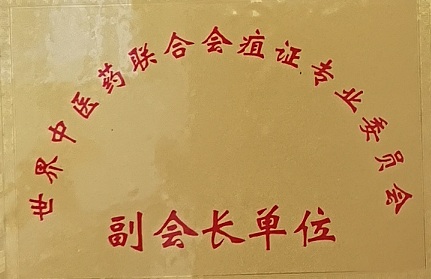 世界中医药联合会疽证专业委员会
副会长单位